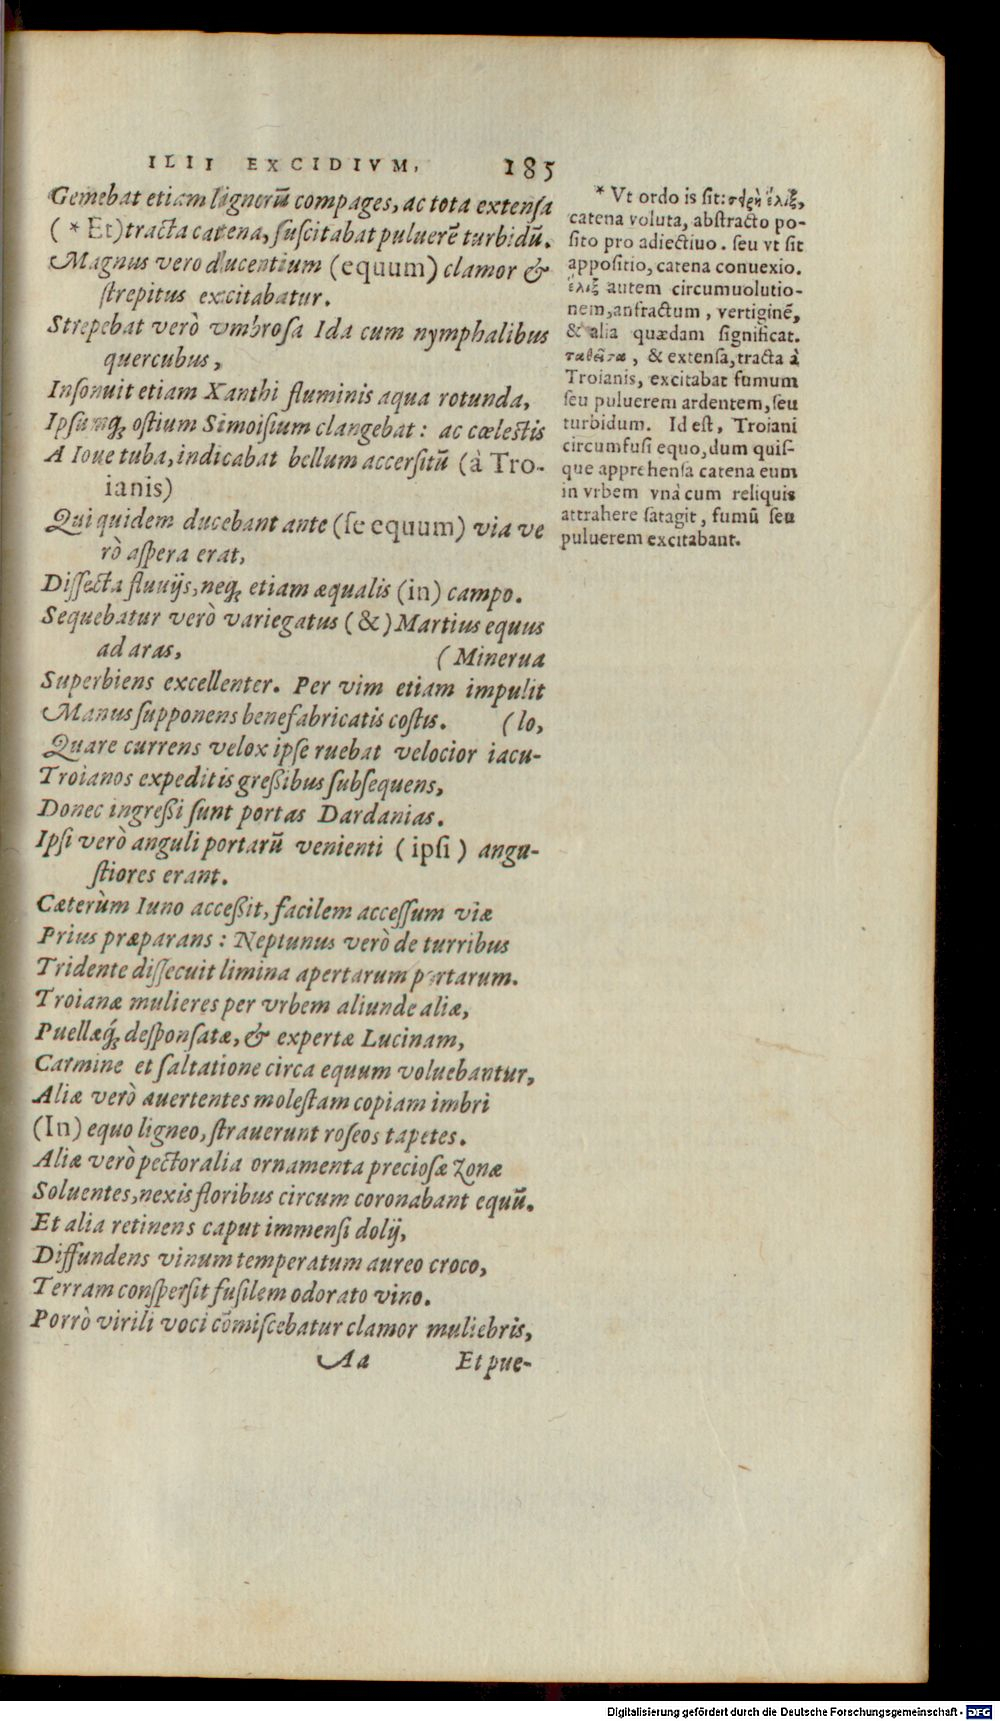 ILII EXCIDIVM. 185
Gemebat etiam lignorũ compages, ac tota extensa
( * Et) tracta catena, suscitabat puluerẽ turbidũ.
Magnus vero ducentium (equum) clamor &
strepitus excitabatur.
Strepebat verò vmbrosa Ida cum nymphalibus
quercubus,
Insonuit etiam Xanthi fluminis aqua rotunda,
Ipsumq; ostium Simoisium clangebat: ac cœlestis
A Ioue tuba, indicabat bellum accersitũ (à Tro-
ianis)
Qui quidem ducebant ante (se equum) via ve
rò aspera erat,
Dissecta fluuijs, neq; etiam æqualis (in) campo.
Sequebatur verò variegatus (&) Martius equus
ad aras, (Minerua
Superbiens excellenter. Per vim etiam impulit
Manus supponens benefabricatis costis. (lo,
Quare currens velox ipse ruebat velocior iacu-
Troianos expeditis greßibus subsequens,
Donec ingreßi sunt portas Dardanias.
Ipsi verò anguli portarũ venienti (ipsi) angu-
stiores erant.
Cæterùm Iuno acceßit, facilem accessum viæ
Prius præparans: Neptunus verò de turribus
Tridente dissecuit limina apertarum portarum.
Troianæ mulieres per vrbem aliunde aliæ,
Puellæq́; desponsatæ, & expertæ Lucinam,
Carmine et saltatione circa equum voluebantur,
Aliæ verò auertentes molestam copiam imbri
(In) equo ligneo, strauerunt roseos tapetes.
Aliæ verò pectoralia ornamenta preciosæ zonæ
Soluentes, nexis floribus circum coronabant equũ.
Et alia retinens caput immensi dolij,
Diffundens vinum temperatum aureo croco,
Terram conspersit fusilem odorato vino.
Porrò virili voci cõmiscebatur clamor muliebris,
Aa Et pue-
* Vt ordo is sit: ἕλιξ,
catena voluta, abstracto po-
sito pro adiectiuo. seu vt sit
appositio, catena conuexio.
ἕλιξ autem circumuolutio-
nem, anfractum, vertiginẽ,
& alia quædam significat.
ταθεῖσα, & extensa, tracta à
Troianis, excitabat fumum
seu puluerem ardentem, seu
turbidum. Id est, Troiani
circumfusi equo, dum quis-
que apprehensa catena eum
in vrbem vnà cum reliquis
attrahere satagit, fumũ seu
puluerem excitabant.
Digitalisierung gefördert durch die Deutsche Forschungsgemeinschaft - DFG